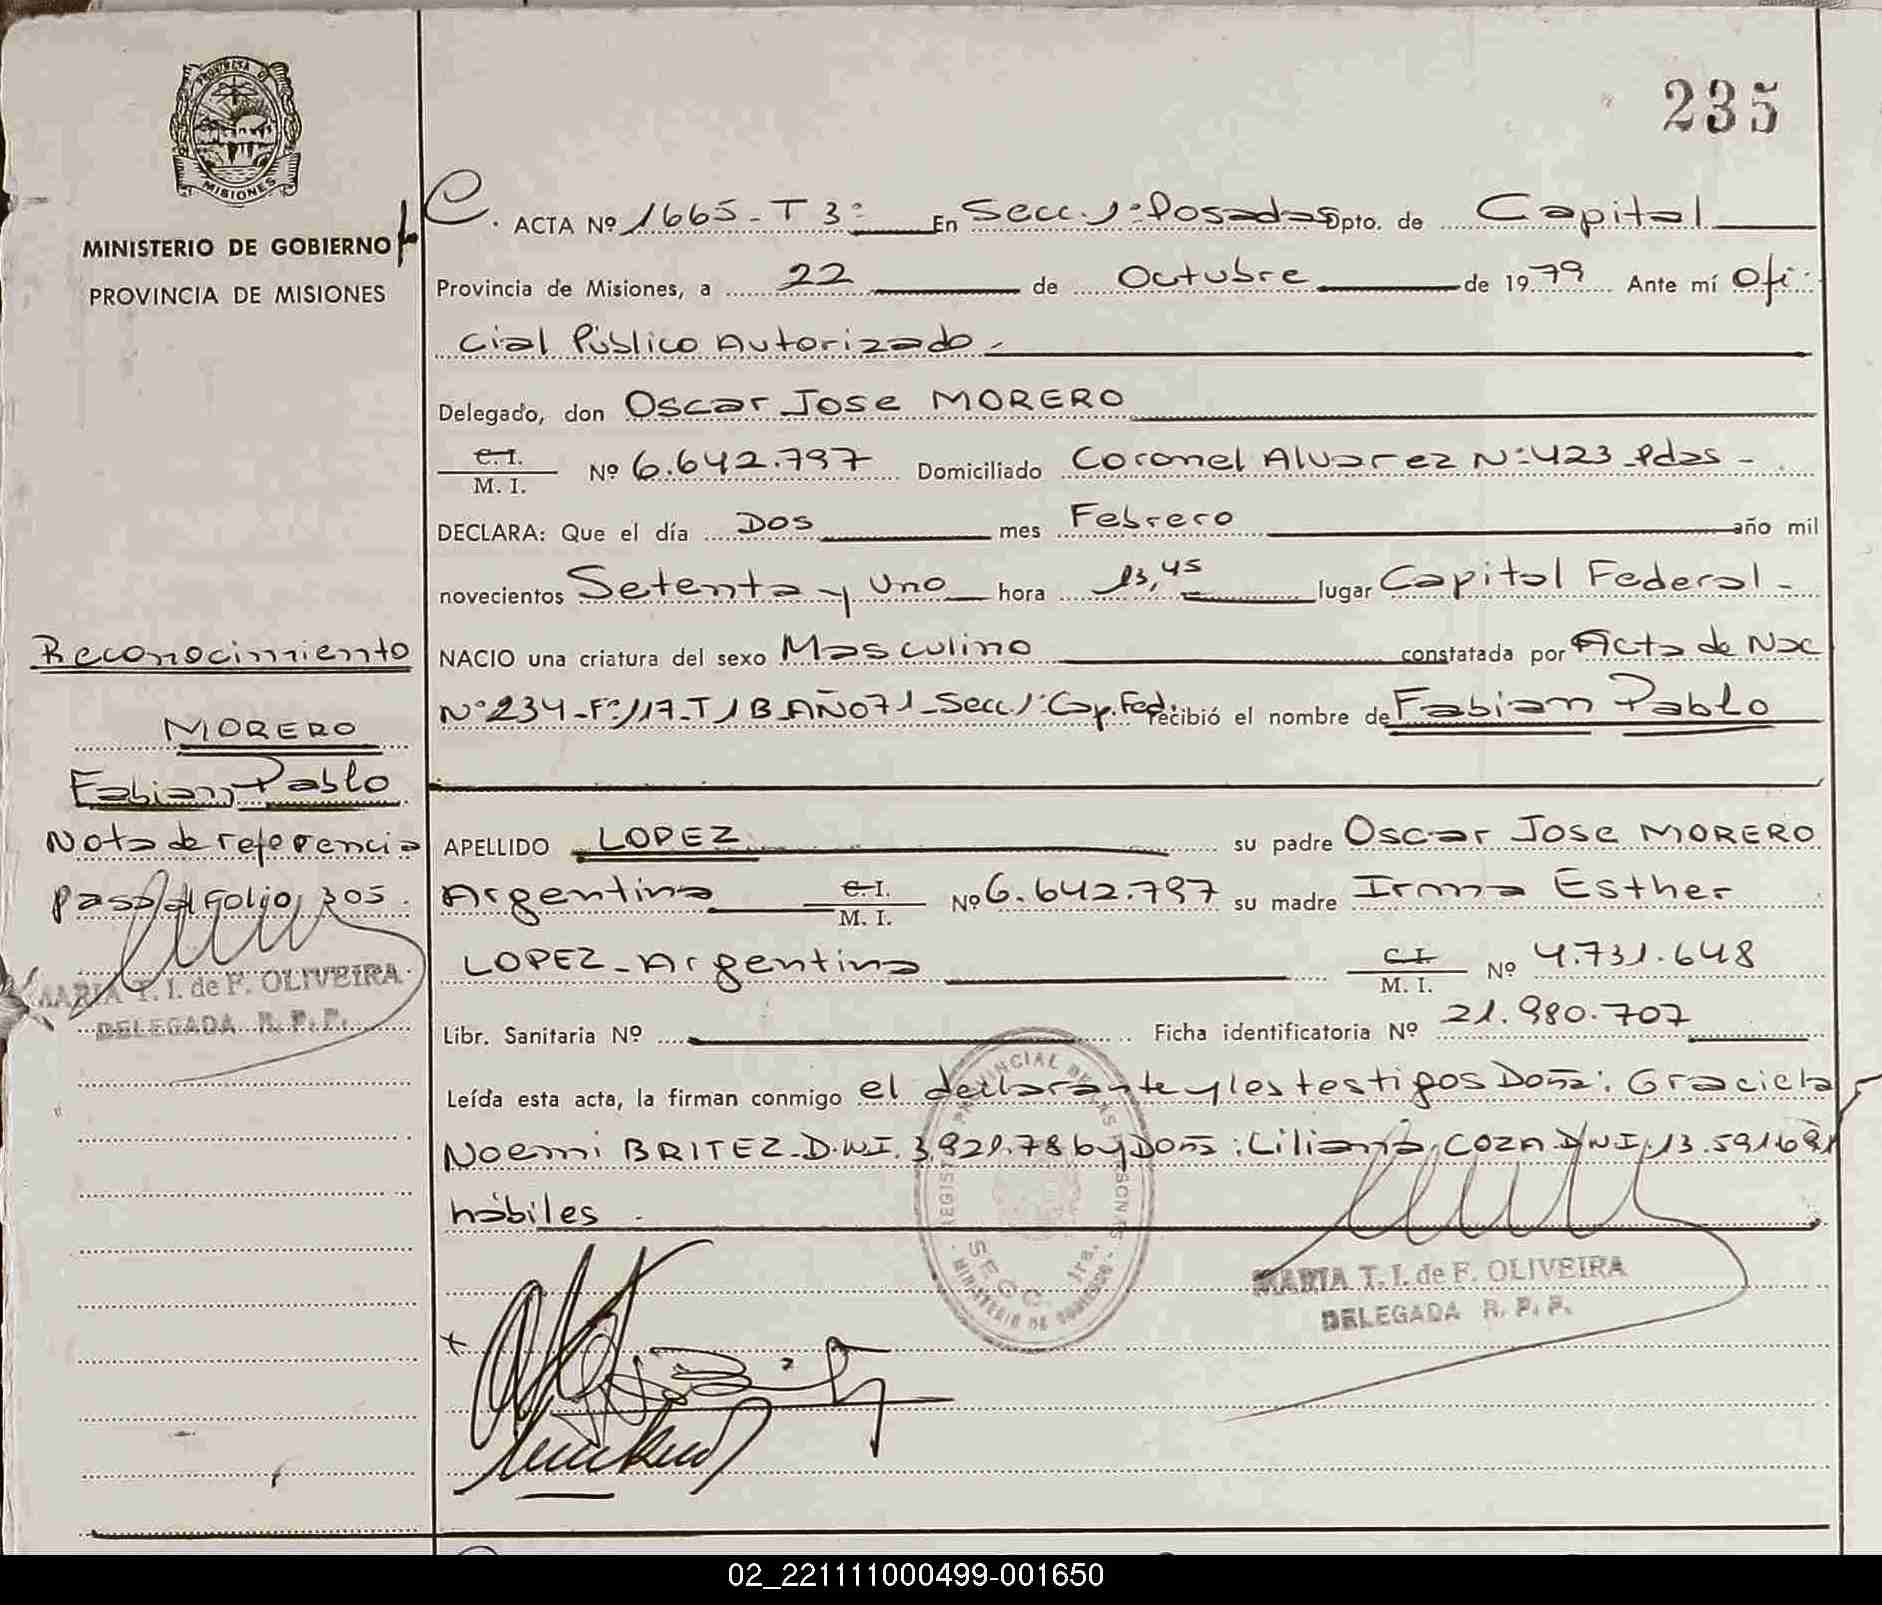 235
PROVINCIA DE
MISIONES
MINISTERIO DE GOBIERNO
PROVINCIA DE MISIONES
C. ACTA Nº 1665 - T 3º En Secc. 1ª Posadas Dpto. de Capital
Provincia de Misiones, a 22 de Octubre de 1979 Ante mí Ofi
cial Público Autorizado -
Delegado, don Oscar Jose MORERO
C. I.
M. I. Nº 6.642.797 Domiciliado Coronel Alvarez Nº 423 Pdas -
DECLARA: Que el día Dos mes Febrero año mil
novecientos Setenta y Uno hora 13,45 lugar Capital Federal -
NACIO una criatura del sexo Masculino constatada por Acta de Nac
Nº 234 - Fº 117 - T 1 B AÑO 71 - Secc 1ª Cap. Fed. recibió el nombre de Fabian Pablo
APELLIDO LOPEZ su padre Oscar Jose MORERO
Argentino C. I.
M. I. Nº 6.642.797 su madre Irma Esther
LOPEZ - Argentina C. I.
M. I. Nº 4.731.648
Libr. Sanitaria Nº Ficha identificatoria Nº 21.980.707
Leída esta acta, la firman conmigo el declarante y los testigos Doña: Graciela
Noemi BRITEZ - D.N.I. y Doña: Liliana COZA D.N.I. 13.591681
hábiles .
Reconocimiento
MORERO
Fabian Pablo
Nota de referencia
pasa al Folio 305 .
MARIA T. I. de F. OLIVEIRA
DELEGADA R. P. P.
REGISTRO PROVINCIAL DE LAS PERSONAS
SECC. 1ra.
MINISTERIO DE GOBIERNO
MARIA T. I. de F. OLIVEIRA
DELEGADA R. P. P.
02_221111000499-001650